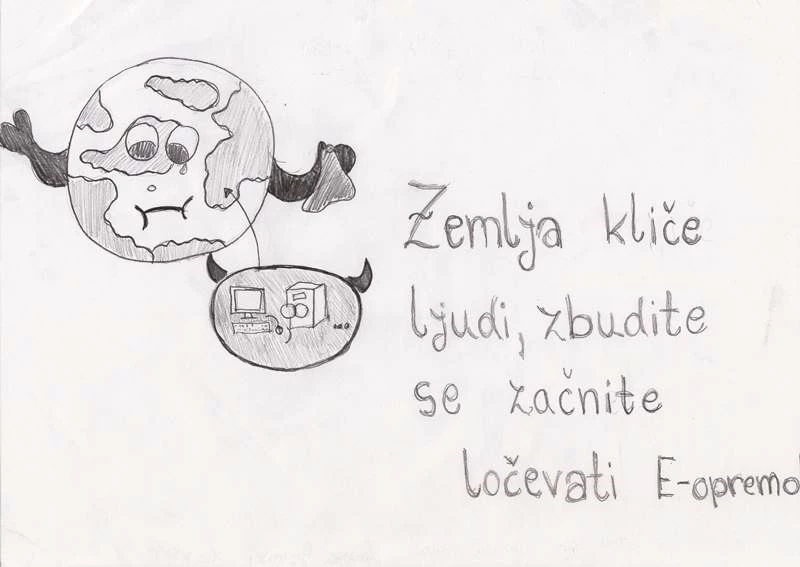 Zemlja kliče
ljudi, zbudite
se začnite
ločevati E-opremo